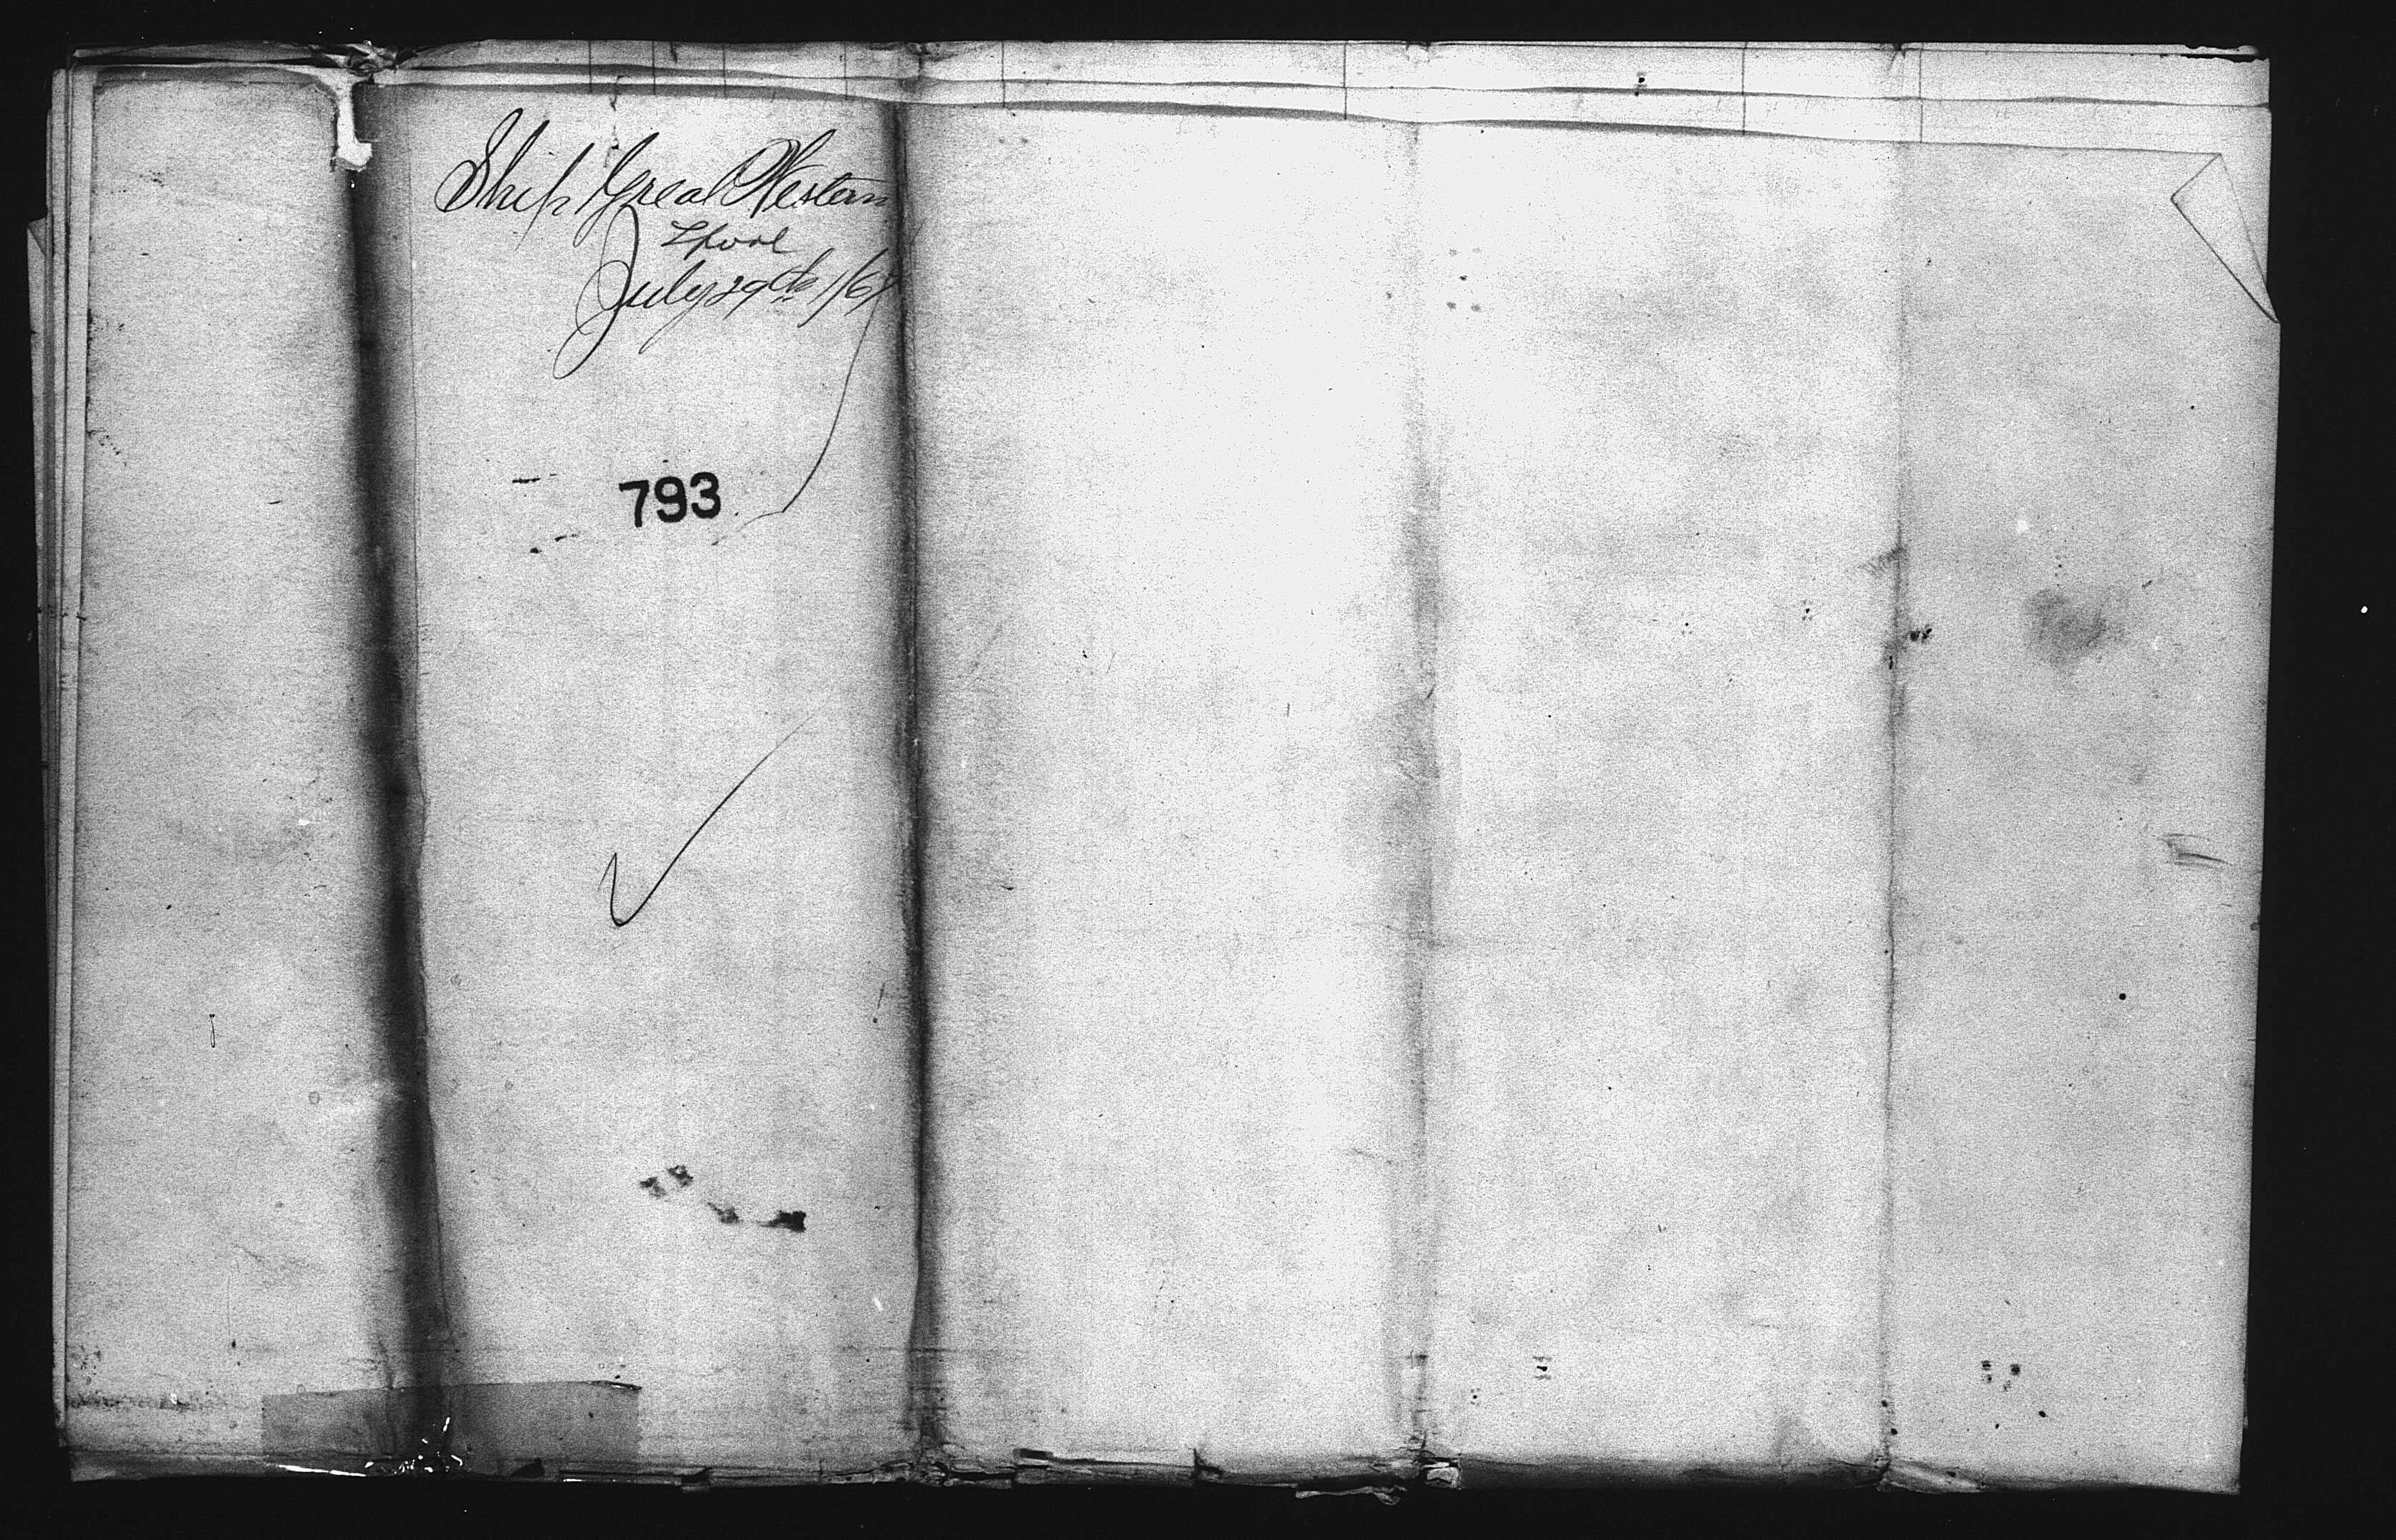 Ship Great Western
Lpool
July 29th 1/67
793